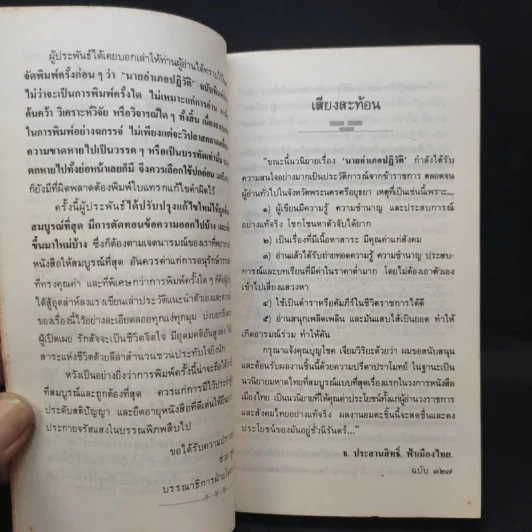 ผู้ประพันธ์ได้เคยบอกเล่าให้ท่านผู้อ่านได้ทราบไว้
จัดพิมพ์ครั้งก่อน ๆ ว่า "นายอำเภอปฏิวัติ" ฉบับพิมพ์
ไม่ว่าจะเป็นการพิมพ์ครั้งใด ไม่เหมาะแก่การอ่าน
ค้นคว้า วิเคราะห์วิจัย หรือวิจารณ์ใด ๆ ทั้งสิ้น เนื่องจาก
ในการพิมพ์อย่างฉกรรจ์ ไม่เพียงแต่จะวิปลาสคลาดเคลื่อน
ความขาดหายไปเป็นวรรค ๆ หรือเป็นบรรทัดเท่านั้น
ตกหายไปทั้งย่อหน้าเลยก็มี จึงควรเลือกใช้ปกอ่อน
ก็ยังมีที่ผิดพลาดต้องพิมพ์ใบแทรกแก้ไขคำผิดไว้
ครั้งนี้ผู้ประพันธ์ได้ปรับปรุงแก้ไขใหม่ให้ถูกต้อง
สมบูรณ์ที่สุด มีการตัดทอนข้อความออกไปบ้าง
ขึ้นมาใหม่บ้าง ซึ่งก็ตรงตามเจตนารมณ์ของเราที่
หนังสือให้สมบูรณ์ที่สุด อันควรค่าแก่การอนุรักษ์
ที่ทรงคุณค่า และที่พิเศษกว่าการพิมพ์ครั้งใด ๆ ก็คือ
ได้สู้อุตส่าห์ลงแรงเขียนเล่าประวัติแนะนำตัวเองและ
ของเรื่องนี้ไว้อย่างละเอียดลออทุกแง่ทุกมุม
ผู้เปิดเผย รักสัจจะเป็นชีวิตจิตใจ มีอุดมคติอันสูง
สาระแห่งชีวิตด้วยลีลาสำนวนชวนประทับใจยิ่งนัก
หวังเป็นอย่างยิ่งว่าการพิมพ์ครั้งนี้น่าจะถือได้
ที่สมบูรณ์และถูกต้องที่สุด ควรแก่การมีไว้ประจำ
ประดับสติปัญญา และยืดอายุหนังสือที่ดีเด่นให้
ประกายจรัสแสงในบรรณพิภพสืบไป
ขอได้รับความปรารถนา
บรรณาธิการฝ่าย
เสียงสะท้อน
"ขณะนี้นวนิยายเรื่อง 'นายอำเภอปฏิวัติ' กำลังได้รับ
ความสนใจอย่างมากเป็นประวัติการณ์จากข้าราชการ ตลอดจน
ผู้อ่านทั่วไปในจังหวัดพระนครศรีอยุธยา เหตุที่เป็นเช่นนี้เพราะ...
๑) ผู้เขียนมีความรู้ ความชำนาญ และประสบการณ์
อย่างแท้จริง โชกโชนหาตัวจับได้ยาก
๒) เป็นเรื่องที่มีเนื้อหาสาระ มีคุณค่าแก่สังคม
๓) อ่านแล้วได้รับถ่ายทอดความรู้ ความชำนาญ ประสบ-
การณ์และบทเรียนที่มีค่าในราคาต่ำมาก โดยไม่ต้องเอาตัวเอง
เข้าไปเสี่ยงแสวงหา
๔) ใช้เป็นตำราหรือคัมภีร์ในชีวิตราชการได้ดี
๕) อ่านสนุกเพลิดเพลิน และมันแสบไส้เป็นยอด ทำให้
เกิดอารมณ์ร่วม ทำให้คัน
กรุณาแจ้งคุณบุญโชค เจียมวิริยะด้วยว่า ผมขอสนับสนุน
และต้อนรับผลงานชิ้นนี้ด้วยความปรีดาปราโมทย์ ในฐานะเป็น
นวนิยายมหาดไทยที่สมบูรณ์แบบที่สุดเรื่องแรกในวงการหนังสือ
เมืองไทย เป็นนวนิยายที่ให้คุณค่าประโยชน์ทั้งแก่ผู้อ่านวงราชการ
และสังคมไทยอย่างแท้จริง ผลงานอมตะชิ้นนี้จะสดชื่นและคง
ประโยชน์ของมันอยู่ชั่วนิรันดร์..."
ธ. ประสานสิทธิ์, ฟ้าเมืองไทย.
ฉบับ ๓๒๗